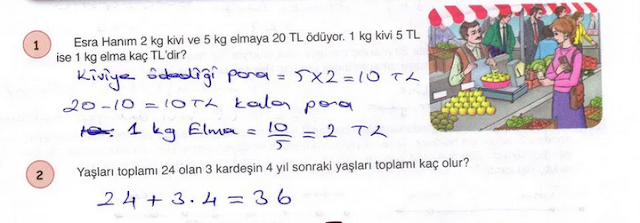 1
Esra Hanım 2 kg kivi ve 5 kg elmaya 20 TL ödüyor. 1 kg kivi 5 TL
ise 1 kg elma kaç TL'dir?
Kiviye ödediği para = 5x2=10 TL
20-10=10TL kalan para
1 kg Elma = 10/5 = 2 TL
2
Yaşları toplamı 24 olan 3 kardeşin 4 yıl sonraki yaşları toplamı kaç olur?
24+3.4=36